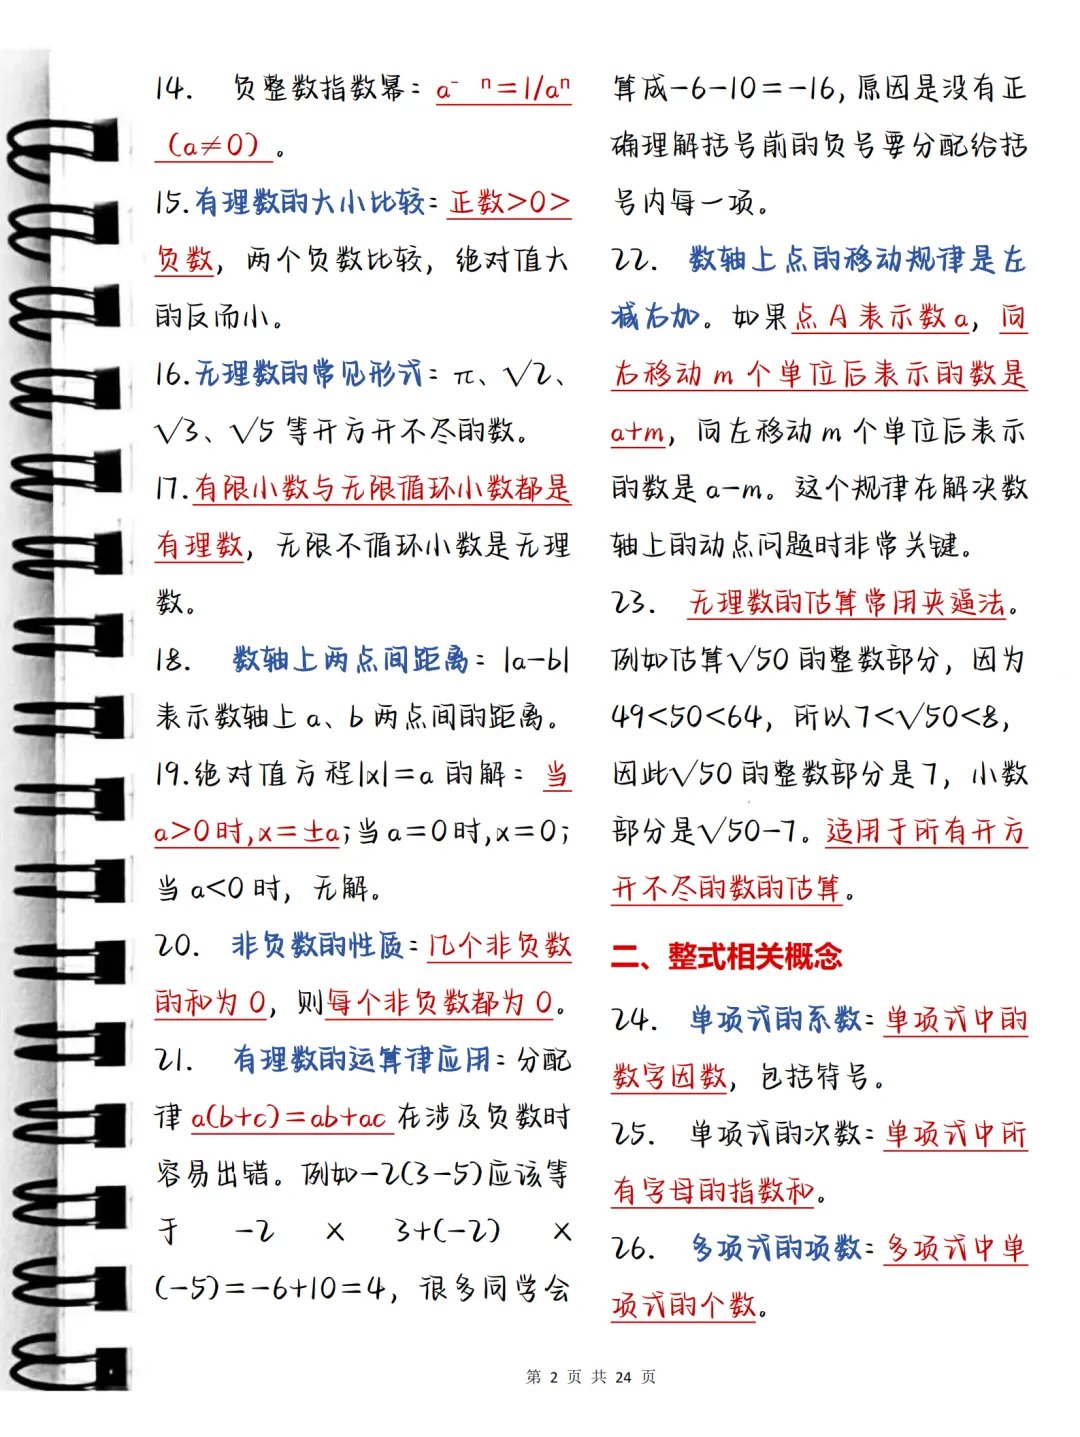 14. 负整数指数幂：a⁻ ⁿ＝1/aⁿ
（a≠0）。
15.有理数的大小比较：正数>0>
负数，两个负数比较，绝对值大
的反而小。
16.无理数的常见形式：π、√2、
√3、√5等开方开不尽的数。
17.有限小数与无限循环小数都是
有理数，无限不循环小数是无理
数。
18. 数轴上两点间距离：|a-b|
表示数轴上a、b两点间的距离。
19.绝对值方程|x|＝a的解：当
a>0时,x＝±a;当a＝0时,x＝0;
当a<0时，无解。
20. 非负数的性质：几个非负数
的和为0，则每个非负数都为0。
21. 有理数的运算律应用：分配
律a(b+c)＝ab+ac在涉及负数时
容易出错。例如-2(3-5)应该等
于 -2 × 3+(-2) ×
(-5)＝-6+10＝4，很多同学会
算成-6-10＝-16，原因是没有正
确理解括号前的负号要分配给括
号内每一项。
22. 数轴上点的移动规律是左
减右加。如果点A表示数a，向
右移动m个单位后表示的数是
a+m，向左移动m个单位后表示
的数是a-m。这个规律在解决数
轴上的动点问题时非常关键。
23. 无理数的估算常用夹逼法。
例如估算√50的整数部分，因为
49<50<64，所以7<√50<8，
因此√50的整数部分是7，小数
部分是√50-7。适用于所有开方
开不尽的数的估算。
二、整式相关概念
24. 单项式的系数：单项式中的
数字因数，包括符号。
25. 单项式的次数：单项式中所
有字母的指数和。
26. 多项式的项数：多项式中单
项式的个数。
第 2 页 共 24 页